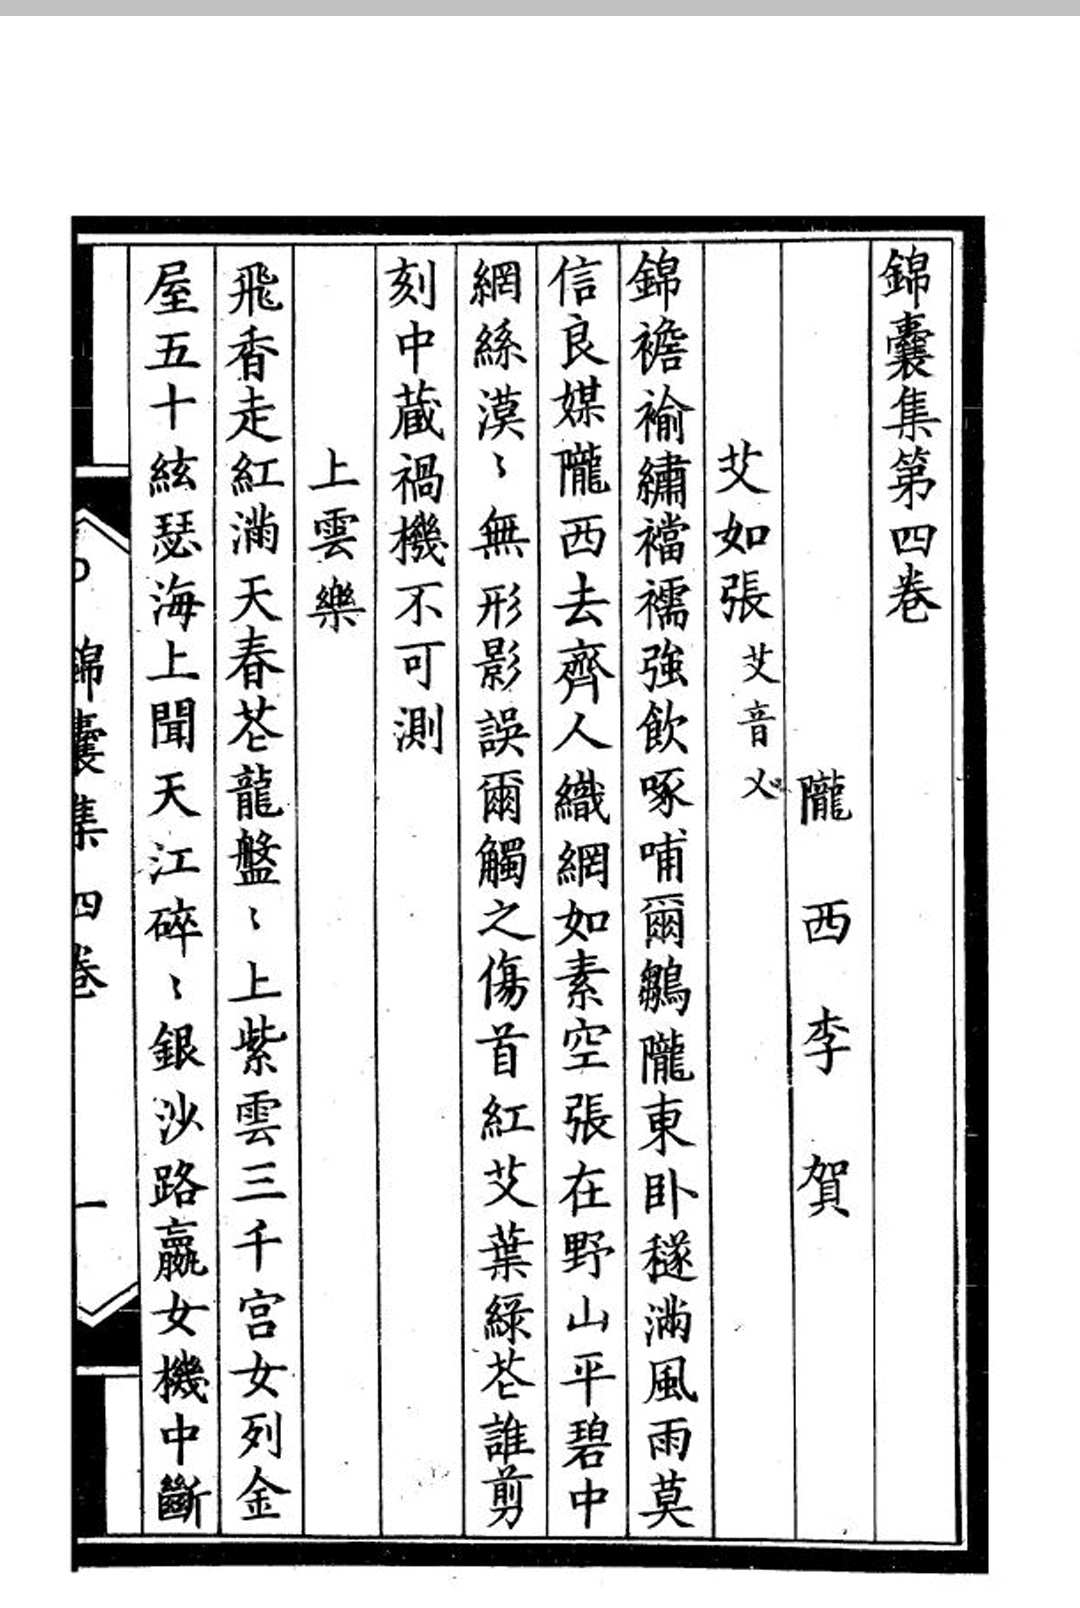 錦囊集第四卷
隴西李賀
艾如張艾音乂
錦襜褕繡襠襦強飲啄哺爾鶵隴東卧穟滿風雨莫
信良媒隴西去齊人織網如素空張在野山平碧中
網絲漠〻無形影誤爾觸之傷首紅艾葉綠芲誰剪
刻中蔵禍機不可測
上雲樂
飛香走紅滿天春芲龍盤〻上紫雲三千宮女列金
屋五十絃瑟海上聞天江碎〻銀沙路嬴女機中斷
錦囊集 四卷 一